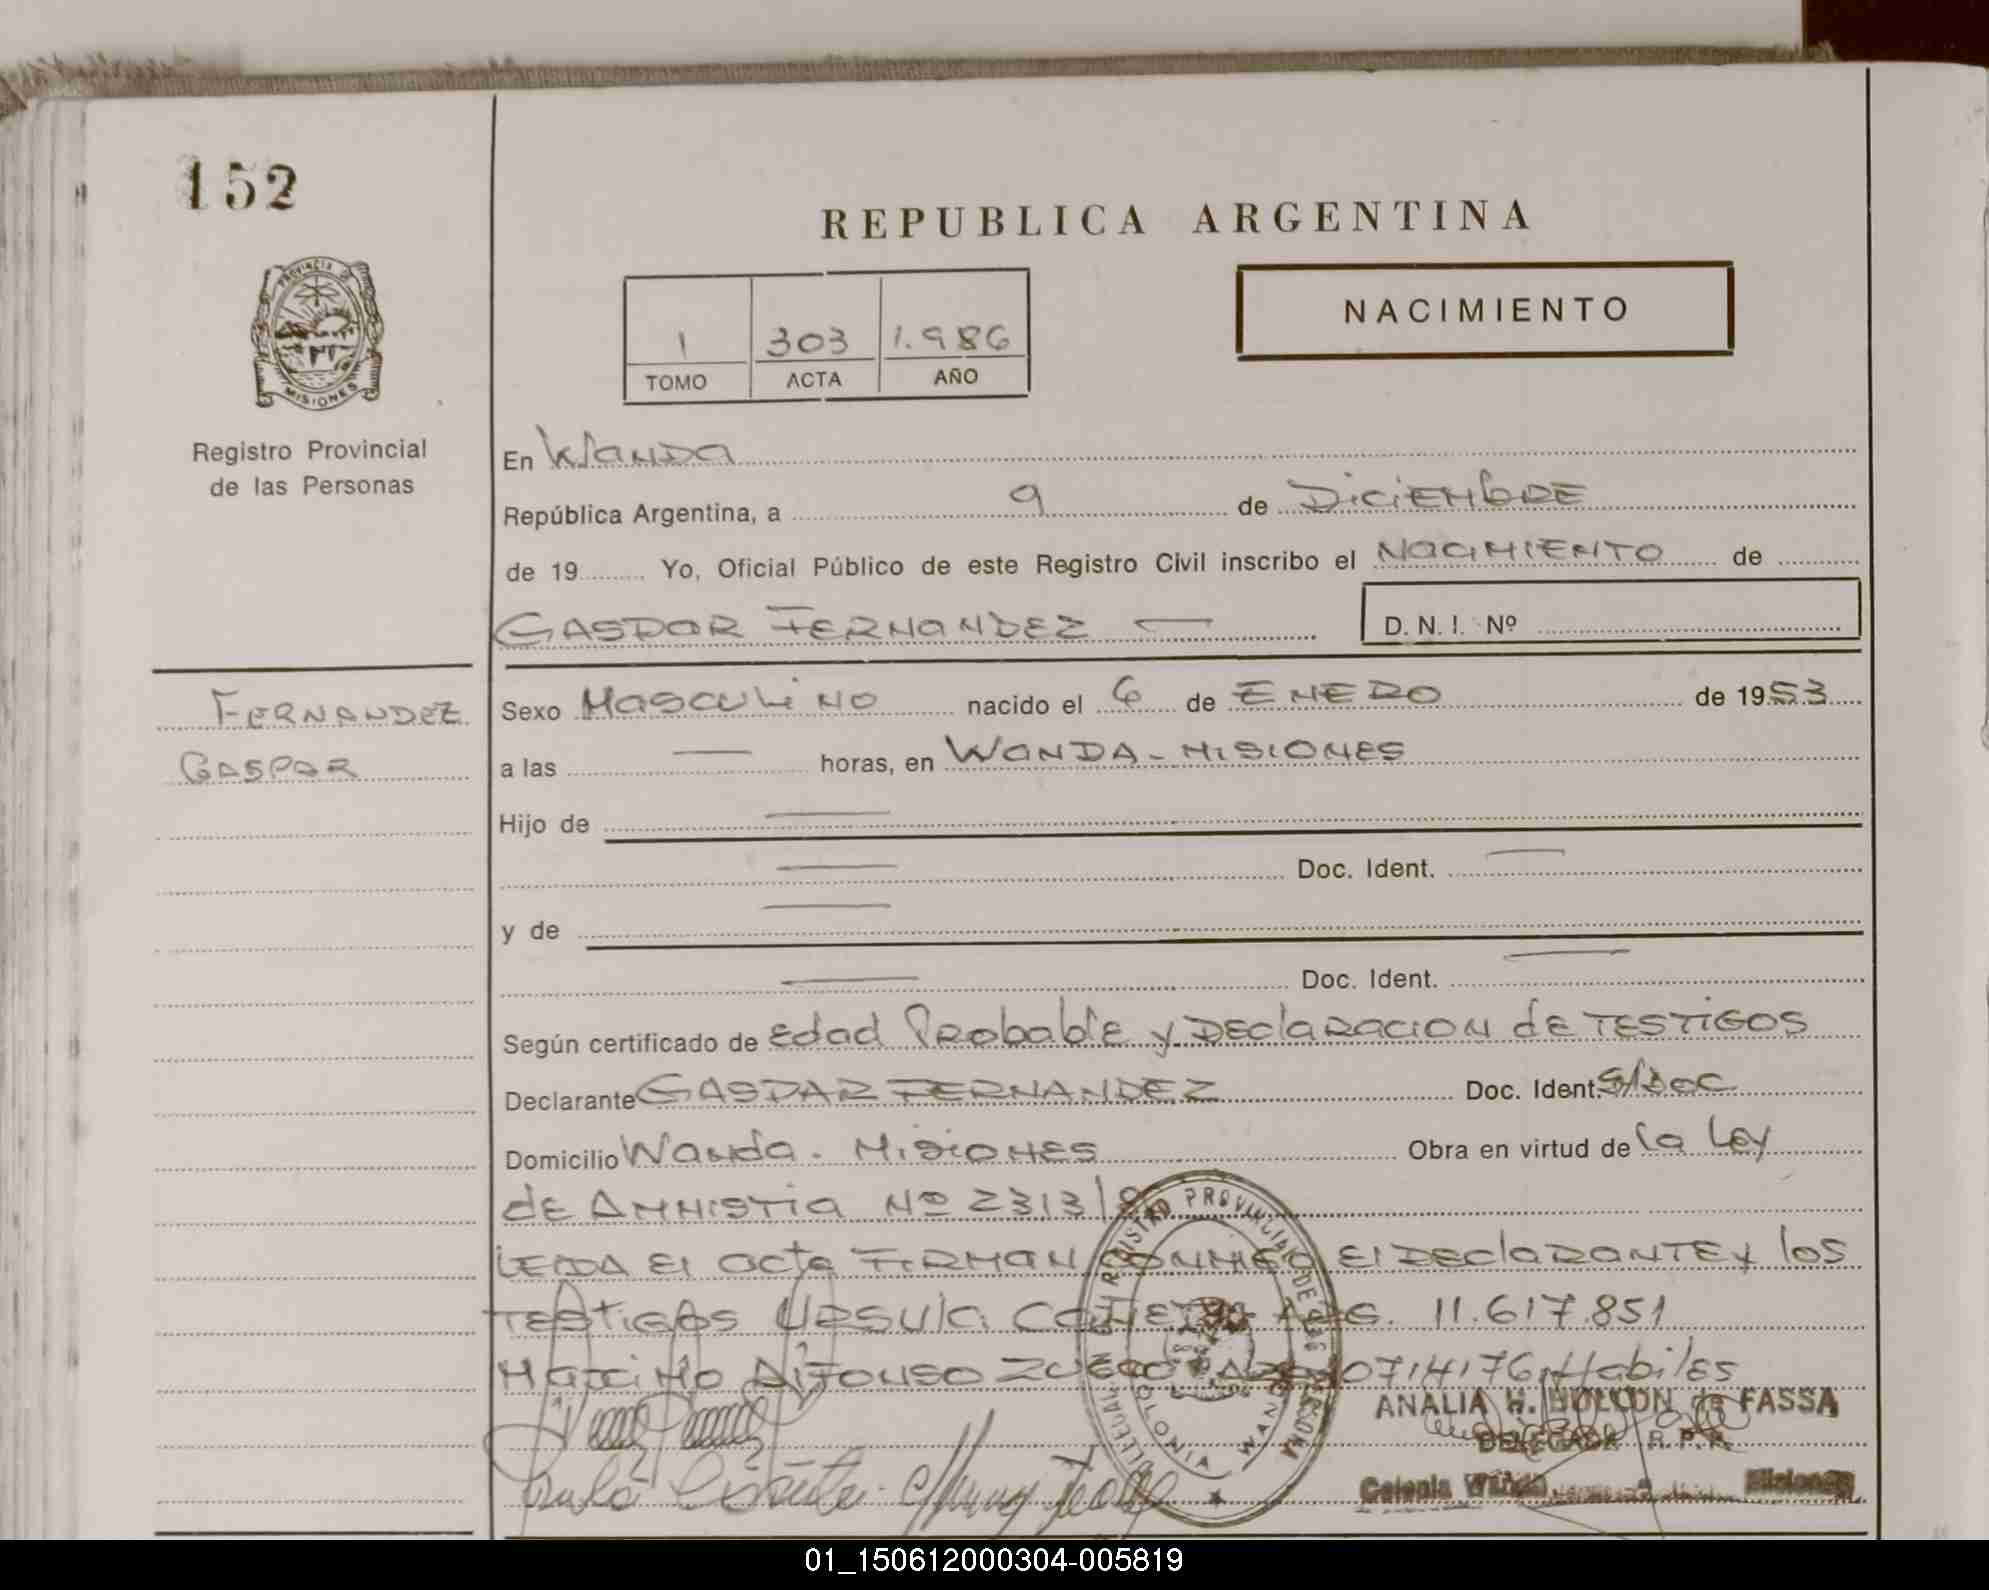 152
REPUBLICA ARGENTINA
PROVINCIA DE
MISIONES
NACIMIENTO
1 303 1.986
TOMO ACTA AÑO
Registro Provincial
de las Personas
En Wanda
República Argentina, a 9 de Diciembre
de 19 Yo, Oficial Público de este Registro Civil inscribo el NaciMIENTO de
GASPAR FERNANDEZ D.N.I. Nº
FERNANDEZ
GASPAR
Sexo Masculino nacido el 6 de ENERO de 1953
a las horas, en WANDA - MISIONES
Hijo de
Doc. Ident.
y de
Doc. Ident.
Según certificado de edad Probable y DEclaRACION de TESTIGOS
Declarante GASPAR FERNANDEZ Doc. Ident. S/Doc
Domicilio Wanda. MisiONES Obra en virtud de la Ley
de AMNISTIA Nº 2313/
LEIDA El acta FIRMAN CONMIGO El DEclaRANTE y los
TESTIGOS URSULA ARG. 11.617.851
MaxiMo Alfonso Habiles
REGISTRO PROVINCIAL DE LAS PERSONAS
COLONIA WANDA
ANALIA H. de FASSA
DELEGADA R.P.P.
Colonia Wanda, Misiones
01_150612000304-005819